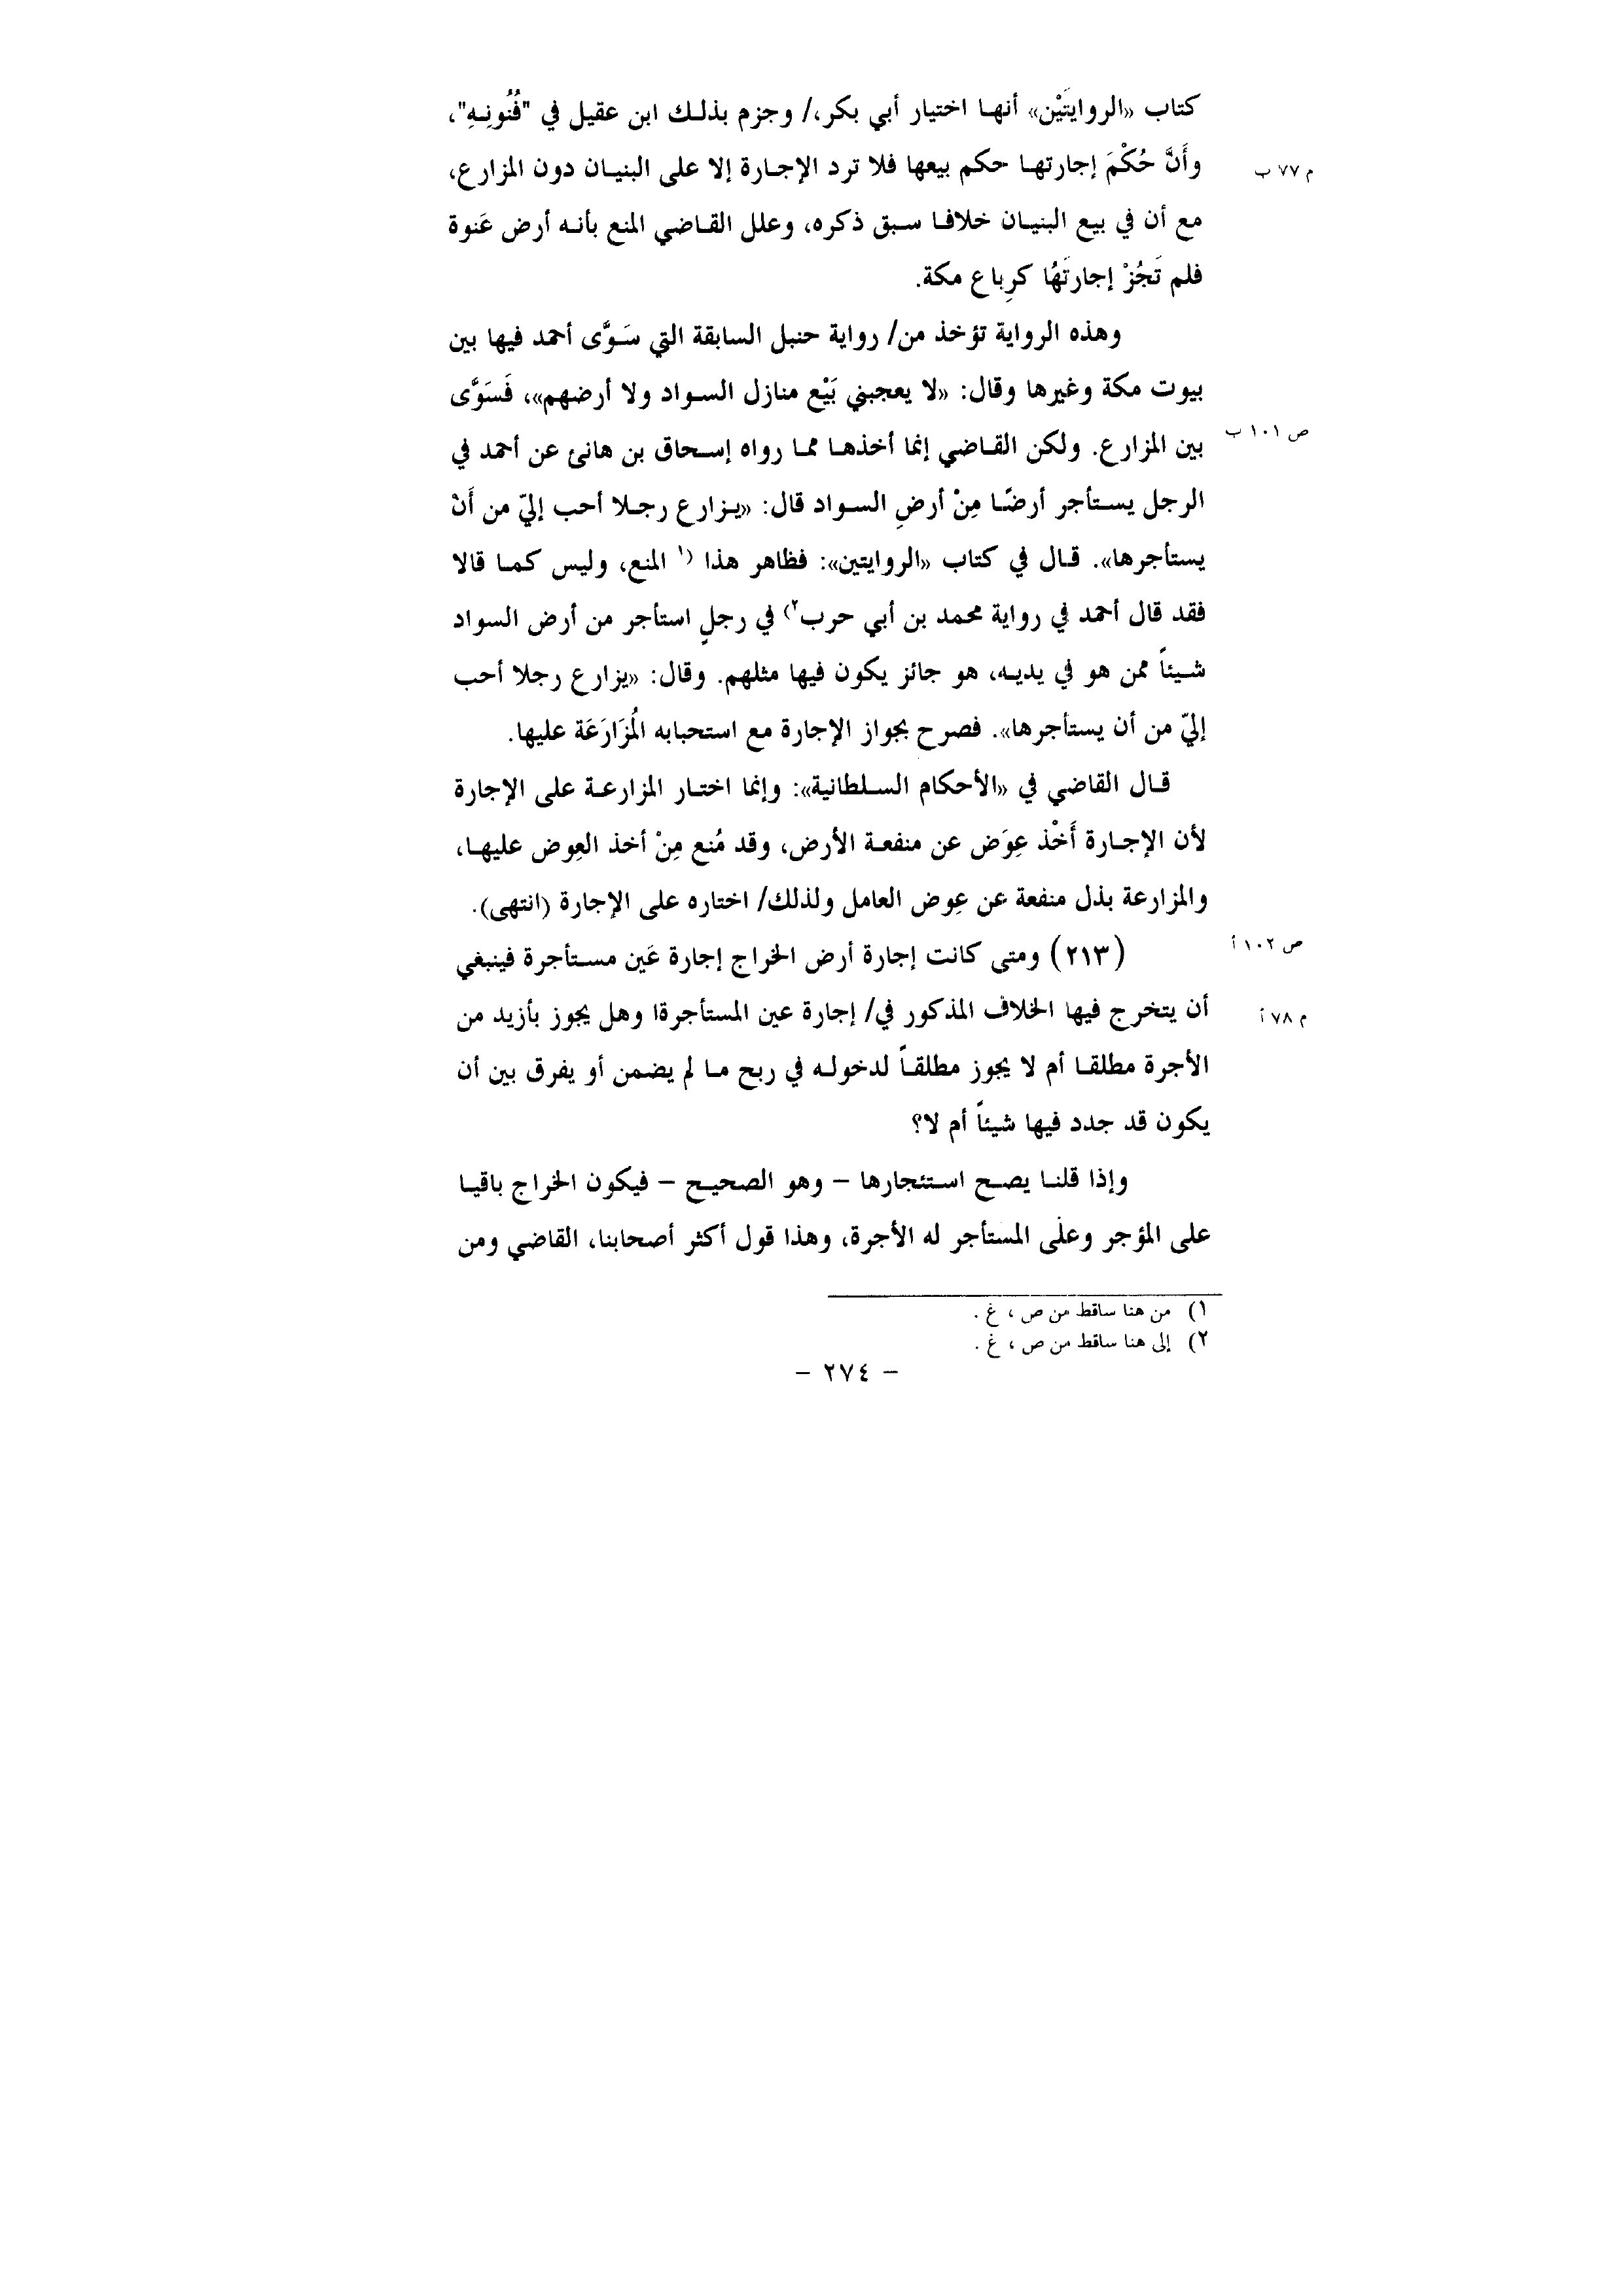 كتاب «الروايتَيْن» أنها اختيار أبي بكر،/ وجزم بذلك ابن عقيل في "فُنُونِهِ"،
وأَنَّ حُكْمَ إجارتها حكم بيعها فلا ترد الإجارة إلا على البنيان دون المزارع،
م ٧٧ ب
مع أن في بيع البنيان خلافا سبق ذكره، وعلل القاضي المنع بأنه أرض عَنوة
فلم تَجُزْ إجارتَهُا كرِباع مكة.
وهذه الرواية تؤخذ من/ رواية حنبل السابقة التي سَوَّى أحمد فيها بين
بيوت مكة وغيرها وقال: «لا يعجبني بَيْع منازل السواد ولا أرضهم»، فَسَوَّى
بين المزارع. ولكن القاضي إنما أخذها مما رواه إسحاق بن هانئ عن أحمد في
ص ١٠١ ب
الرجل يستأجر أرضًا مِنْ أرضِ السواد قال: «يزارع رجلا أحب إليّ من أَنْ
يستأجرها». قال في كتاب «الروايتين»: فظاهر هذا (١ المنع، وليس كما قالا
فقد قال أحمد في رواية محمد بن أبي حرب٢) في رجلٍ استأجر من أرض السواد
شيئاً ممن هو في يديه، هو جائز يكون فيها مثلهم. وقال: «يزارع رجلا أحب
إليّ من أن يستأجرها». فصرح بجواز الإجارة مع استحبابه المُزَارَعَة عليها.
قال القاضي في «الأحكام السلطانية»: وإنما اختار المزارعة على الإجارة
لأن الإجارة أَخْذ عِوَض عن منفعة الأرض، وقد مُنع مِنْ أخذ العِوض عليها،
والمزارعة بذل منفعة عن عِوض العامل ولذلك/ اختاره على الإجارة (انتهى).
(٢١٣) ومتى كانت إجارة أرض الخراج إجارة عَين مستأجرة فينبغي
ص ١٠٢ أ
أن يتخرج فيها الخلاف المذكور في/ إجارة عين المستأجرة! وهل يجوز بأزيد من
م ٧٨ أ
الأجرة مطلقا أم لا يجوز مطلقاً لدخوله في ربح ما لم يضمن أو يفرق بين أن
يكون قد جدد فيها شيئاً أم لا؟
وإذا قلنا يصح استئجارها – وهو الصحيح – فيكون الخراج باقيا
على المؤجر وعلى المستأجر له الأجرة، وهذا قول أكثر أصحابنا، القاضي ومن
١) من هنا ساقط من ص ، غ .
٢) إلى هنا ساقط من ص ، غ .
– ٢٧٤ –